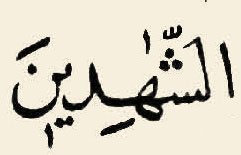 الشّٰهِدِينَ